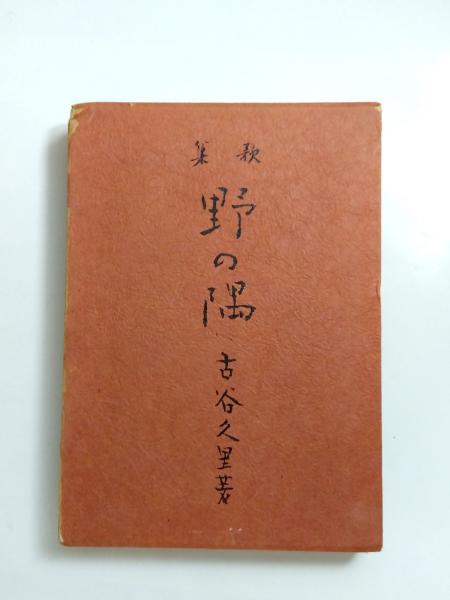 歌集
野の隅
古谷久里著